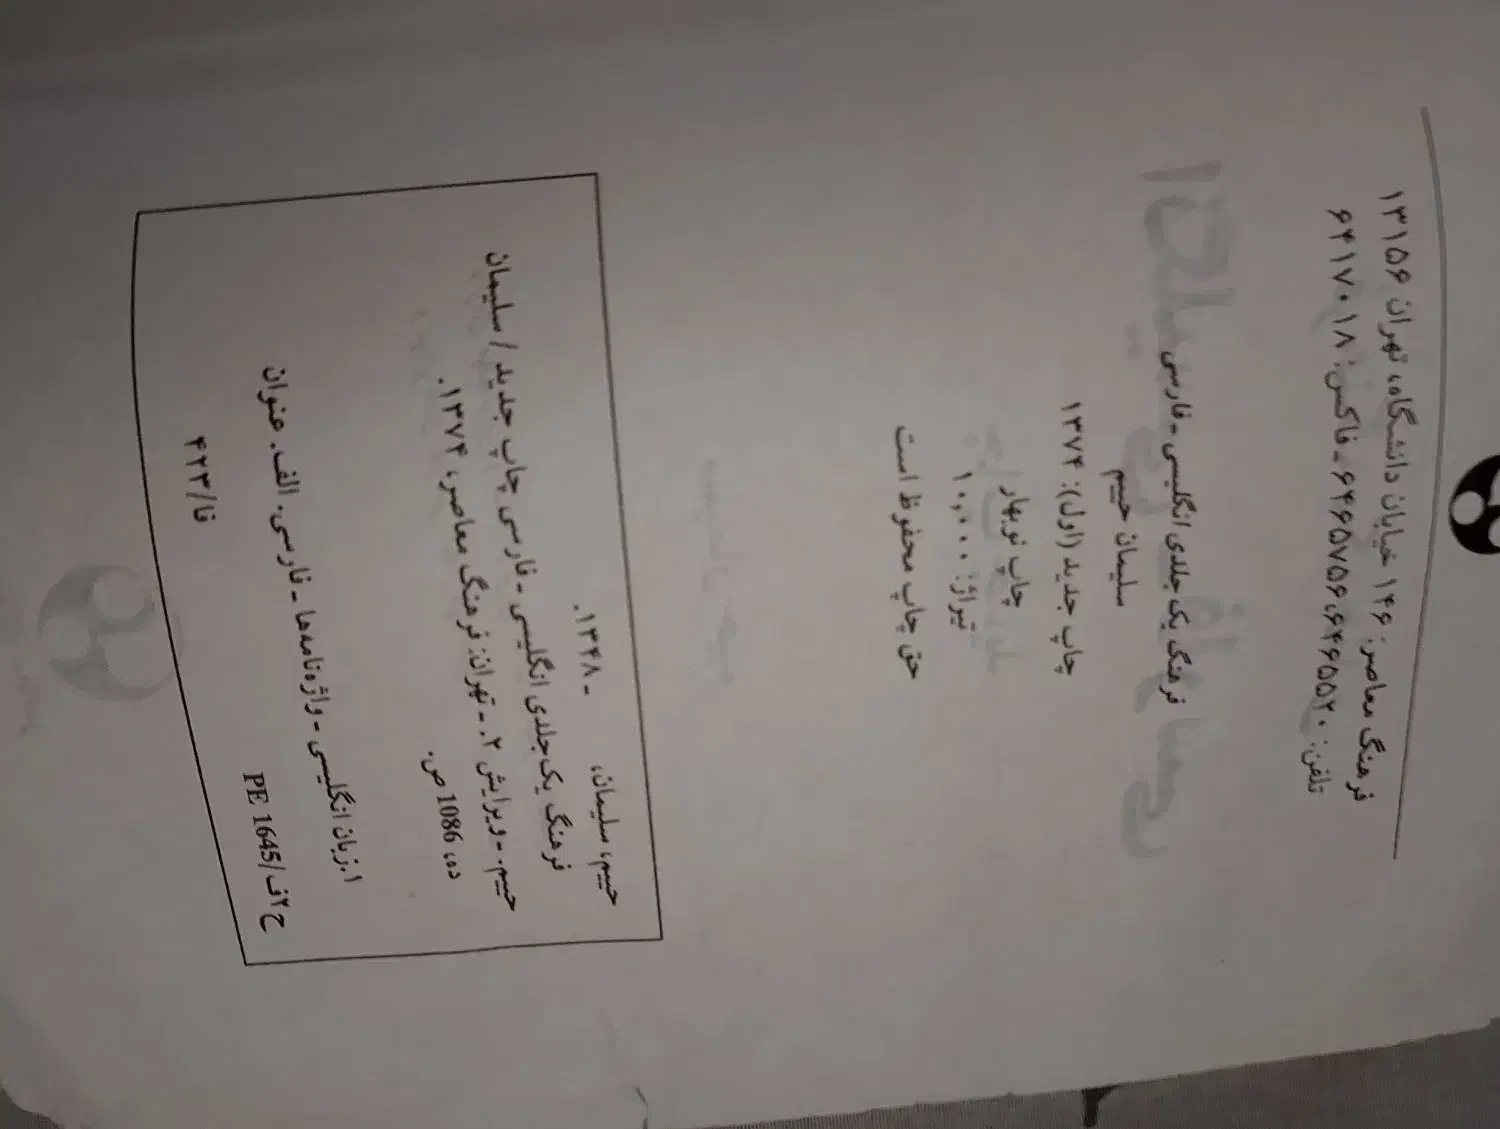 فرهنگ معاصر: ۱۴۶ خیابان دانشگاه، تهران ۱۳۱۵۶
تلفن: ۶۴۶۵۵۲۰، ۶۴۶۵۷۵۶ - فاکس: ۶۴۱۷۰۱۸
فرهنگ یک جلدی انگلیسی - فارسی
سلیمان حییم
چاپ جدید (اول): ۱۳۷۴
چاپ نوبهار
تیراژ: ۱۰,۰۰۰
حق چاپ محفوظ است
حییم، سلیمان، - ۱۳۴۸.
فرهنگ یک‌جلدی انگلیسی - فارسی چاپ جدید / سلیمان
حییم. - ویرایش ۲. - تهران: فرهنگ معاصر، ۱۳۷۴.
ده، 1086 ص.
۱. زبان انگلیسی - واژه‌نامه‌ها - فارسی. الف. عنوان
ح۲ف/PE 1645
۴۲۳/فا